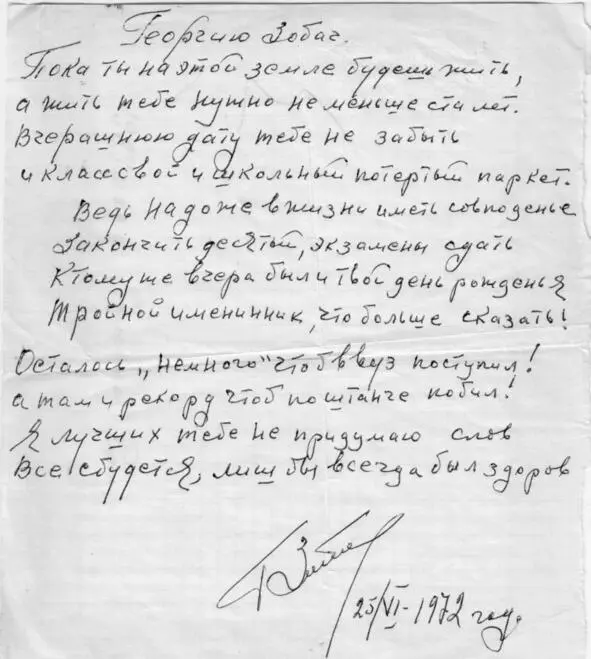 Георгию Зобач.
Пока ты на этой земле будешь жить,
а жить тебе нужно не меньше ста лет.
Вчерашнюю дату тебе не забыть
и класс свой и школьный потертый паркет.
Ведь надо же в жизни иметь совподенье
Закончить десятый, экзамены сдать
К тому же вчера был и твой день рожденья
Тройной именинник, что больше сказать!
Осталось „немного" чтоб в вуз поступил!
а там и рекорд чтоб по штанге побил!
Я лучших тебе не придумаю слов
Все сбудется, лиш бы всегда был здоров
25/VI-1972 год.